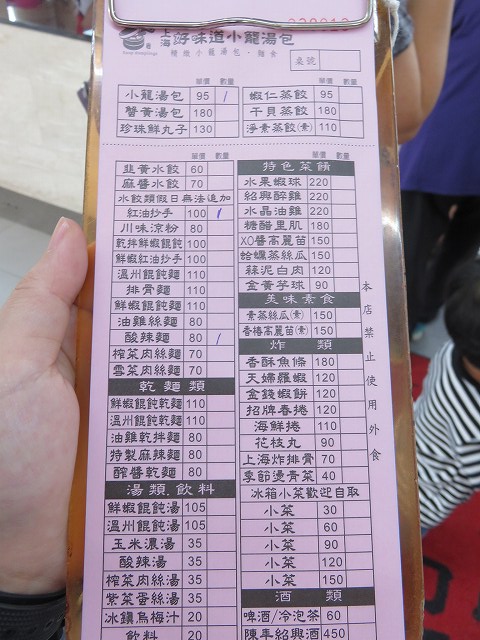 上海 好味道小龍湯包
精緻小籠湯包．麵食
桌號
單價 數量
小龍湯包 95 /
蟹黃湯包 180
珍珠鮮丸子 130
單價 數量
蝦仁蒸餃 95
干貝蒸餃 180
淨素蒸餃(素) 110
單價 數量
韭黃水餃 60
麻醬水餃 70
水餃類假日無法追加
紅油抄手 100 /
川味涼粉 80
乾拌鮮蝦餛飩 100
鮮蝦紅油抄手 100
溫州餛飩麵 110
排骨麵 110
鮮蝦餛飩麵 110
油雞絲麵 80
酸辣麵 80 /
榨菜肉絲麵 70
雪菜肉絲麵 70
乾麵類
鮮蝦餛飩乾麵 110
溫州餛飩乾麵 110
油雞乾拌麵 80
特製麻辣麵 80
醡醬乾麵 80
湯類.飲料
鮮蝦餛飩湯 105
溫州餛飩湯 105
玉米濃湯 35
酸辣湯 35
榨菜肉絲湯 35
紫菜蛋絲湯 35
冰鎮烏梅汁 20
飲料 20
單價 數量
特色菜餚
水果蝦球 220
紹興醉雞 220
水晶油雞 220
糖醋里肌 180
XO醬高麗苗 150
蛤蠣蒸絲瓜 150
蒜泥白肉 120
金黃芋球 90
美味素食
素蒸絲瓜(素) 150
香椿高麗苗(素) 150
炸類
香酥魚條 180
天婦羅蝦 120
金錢蝦餅 120
招牌春捲 120
海鮮捲 110
花枝丸 90
上海炸排骨 70
季節燙青菜 40
冰箱小菜歡迎自取
小菜 30
小菜 60
小菜 90
小菜 120
小菜 150
酒類
啤酒/冷泡茶 60
陳年紹興酒 450
本店禁止使用外食